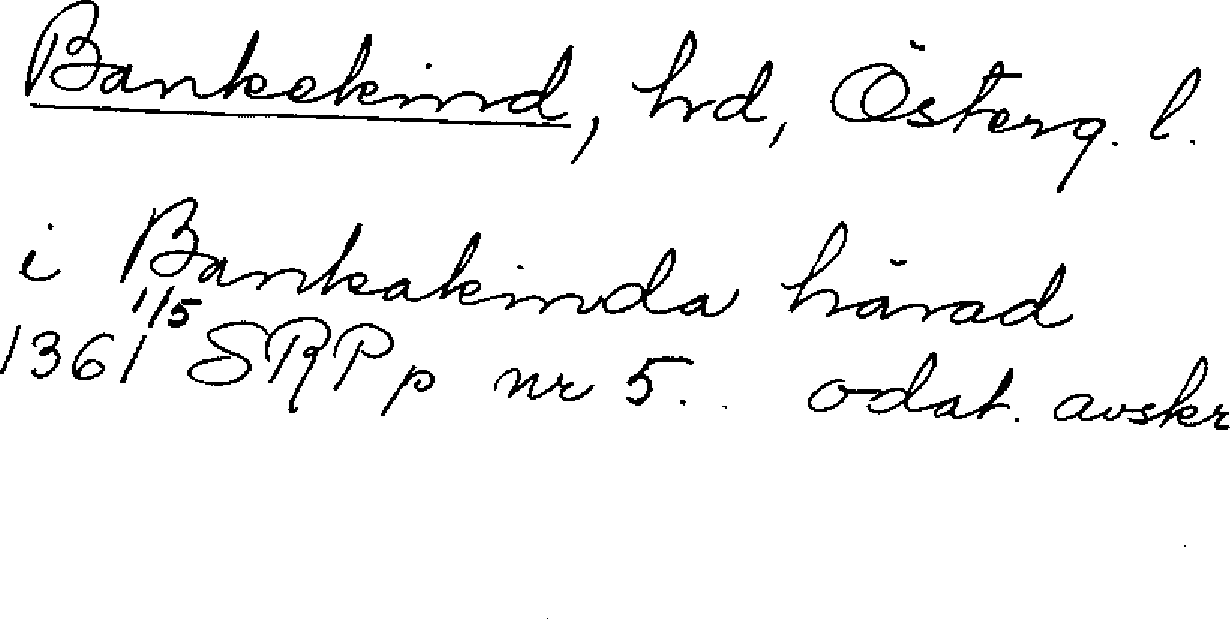 Bankekind, hd, Österg. l.
i Bankakinda härad
1361 1/5 SRP p nr 5. odat. avskr